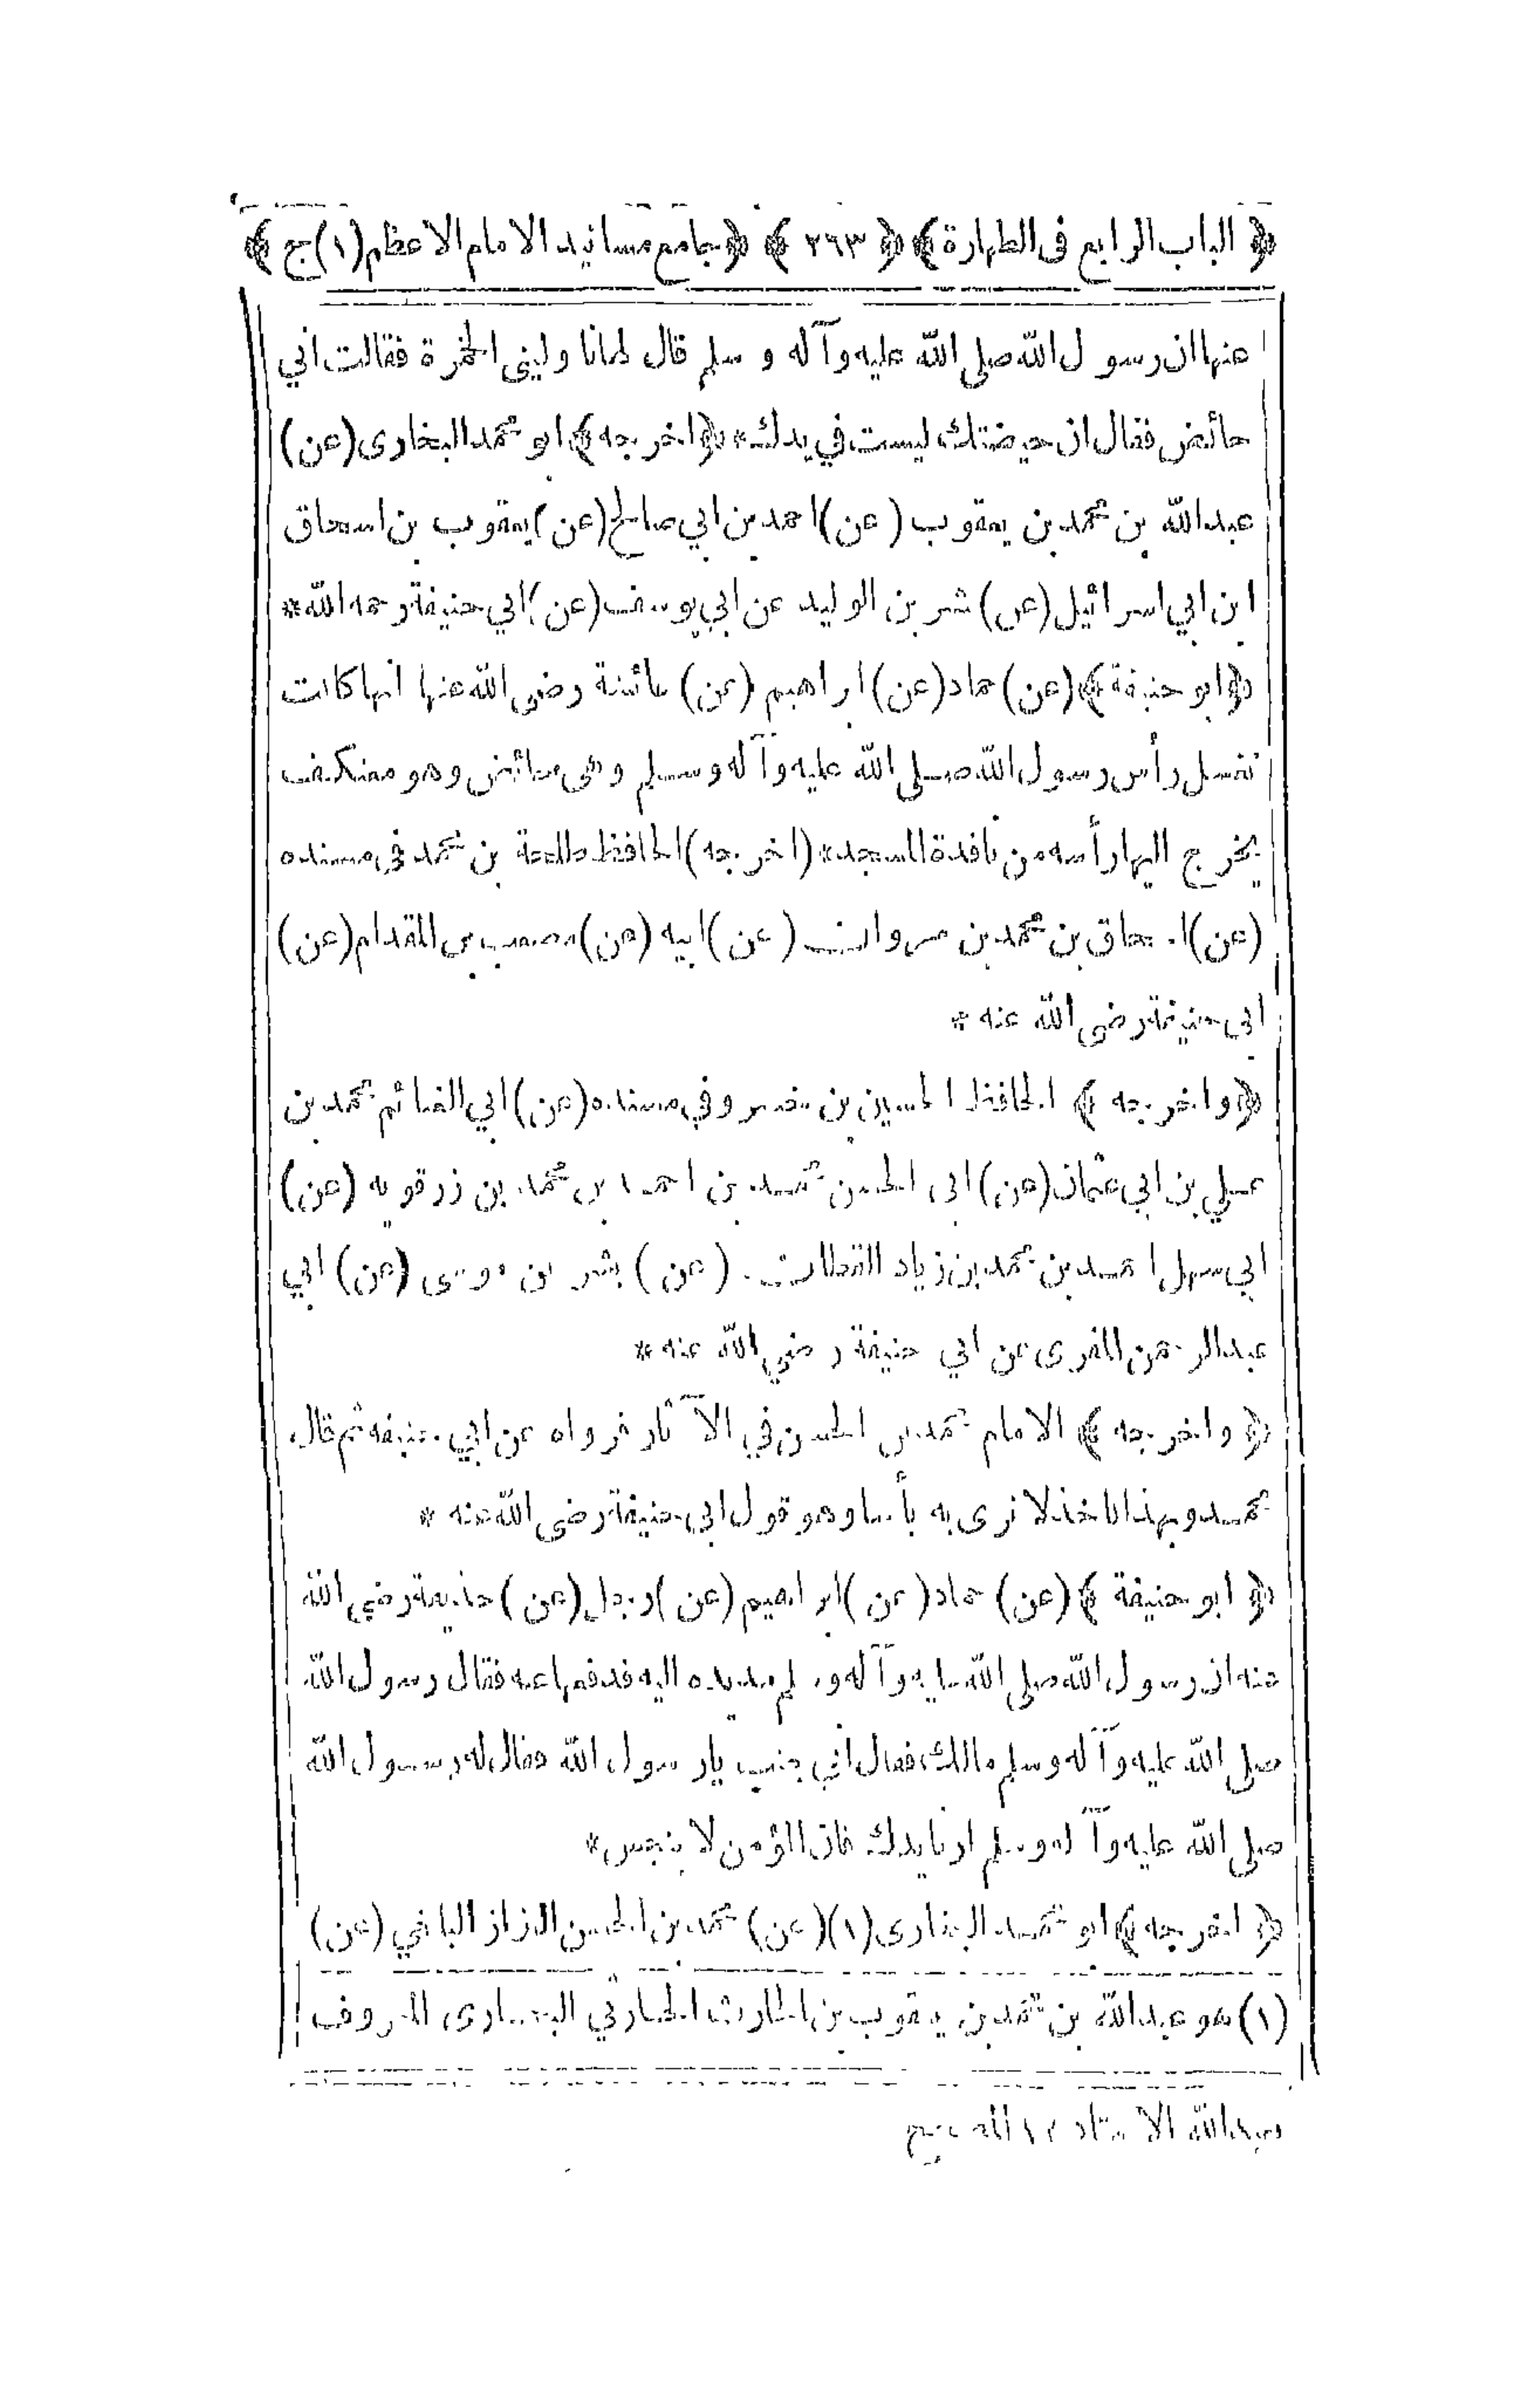 ﴿ الباب الرابع فى الطهارة ﴾ ﴿ ٢٦٣ ﴾ ﴿ جامع مسانيد الامام الاعظم (١) ج ﴾
عنها ان رسول الله صلى الله عليه وآله وسلم قال لها ناولينى الخمرة فقالت اني
حائض فقال ان حيضتك ليست في يدك * ﴿ اخرجه ﴾ ابو محمد البخارى (عن)
عبد الله بن محمد بن يعقوب (عن) احمد بن ابي صالح (عن) يعقوب بن اسحاق
ابن ابي اسرائيل (عن) بشر بن الوليد عن ابي يوسف (عن) ابي حنيفة رحمه الله *
﴿ ابو حنيفة ﴾ (عن) حماد (عن) ابراهيم (عن) عائشة رضى الله عنها انها كانت
تغسل رأس رسول الله صلى الله عليه وآله وسلم وهى حائض وهو معتكف
يخرج اليها رأسه من نافذة المسجد * (اخرجه) الحافظ طلحة بن محمد فى مسنده
(عن) اسحاق بن محمد بن مروان (عن) ابيه (عن) مصعب بن المقدام (عن)
ابى حنيفة رضى الله عنه *
﴿ واخرجه ﴾ الحافظ الحسين بن خسرو في مسنده (عن) ابي الغنائم محمد بن
علي بن ابي عثمان (عن) ابى الحسن محمد بن احمد بن محمد بن زرقويه (عن)
ابي سهل احمد بن محمد بن زياد القطان (عن) بشر بن موسى (عن) ابي
عبد الرحمن المقرى عن ابي حنيفة رضي الله عنه *
﴿ واخرجه ﴾ الامام محمد بن الحسن في الآثار فرواه عن ابي حنيفه ثم قال
محمد وبهذا ناخذ لا نرى به بأسا وهو قول ابى حنيفة رضى الله عنه *
﴿ ابو حنيفة ﴾ (عن) حماد (عن) ابراهيم (عن) رجل (عن) حذيفة رضي الله
عنه ان رسول الله صلى الله عليه وآله وسلم مد يده اليه فدفعها عنه فقال رسول الله
صلى الله عليه وآله وسلم مالك فقال اني جنب يا رسول الله فقال له رسول الله
صلى الله عليه وآله وسلم ارنا يدك فان المؤمن لا ينجس *
﴿ اخرجه ﴾ ابو محمد البخارى (١) (عن) محمد بن الحسن البزاز البلخي (عن)
(١) هو عبد الله بن محمد بن يعقوب بن الحارث الحارثي البخارى المعروف
بعبد الله الاستاذ ١٢